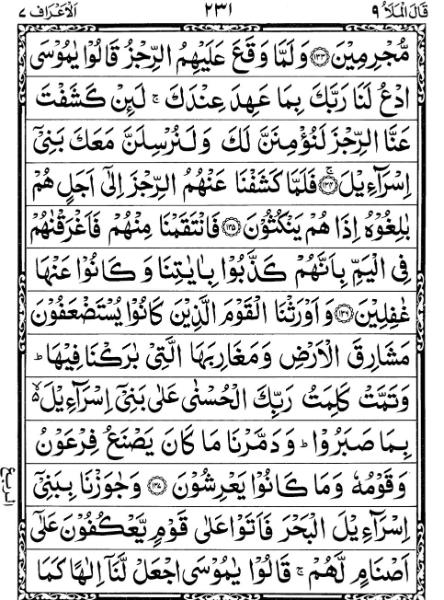 قَالَ الْمَلَاُ ٩ ٢٣١ اَلْاَعْرَاف ٧
مُّجْرِمِيْنَ ﴿١٣٣﴾ وَلَمَّا وَقَعَ عَلَيْهِمُ الرِّجْزُ قَالُوْا يٰمُوْسَى
ادْعُ لَنَا رَبَّكَ بِمَا عَهِدَ عِنْدَكَ ۚ لَئِنْ كَشَفْتَ
عَنَّا الرِّجْزَ لَنُؤْمِنَنَّ لَكَ وَلَنُرْسِلَنَّ مَعَكَ بَنِيْٓ
اِسْرَآءِيْلَ ﴿١٣٤﴾ۚ فَلَمَّا كَشَفْنَا عَنْهُمُ الرِّجْزَ اِلٰٓى اَجَلٍ هُمْ
بٰلِغُوْهُ اِذَا هُمْ يَنْكُثُوْنَ ﴿١٣٥﴾ فَانْتَقَمْنَا مِنْهُمْ فَاَغْرَقْنٰهُمْ
فِي الْيَمِّ بِاَنَّهُمْ كَذَّبُوْا بِاٰيٰتِنَا وَكَانُوْا عَنْهَا
غٰفِلِيْنَ ﴿١٣٦﴾ وَاَوْرَثْنَا الْقَوْمَ الَّذِيْنَ كَانُوْا يُسْتَضْعَفُوْنَ
مَشَارِقَ الْاَرْضِ وَمَغَارِبَهَا الَّتِيْ بٰرَكْنَا فِيْهَا ؕ
وَتَمَّتْ كَلِمَتُ رَبِّكَ الْحُسْنٰى عَلٰى بَنِيْٓ اِسْرَآءِيْلَ ۙ
بِمَا صَبَرُوْا ؕ وَدَمَّرْنَا مَا كَانَ يَصْنَعُ فِرْعَوْنُ
وَقَوْمُهٗ وَمَا كَانُوْا يَعْرِشُوْنَ ﴿١٣٧﴾ وَجٰوَزْنَا بِبَنِيْٓ
الربع
اِسْرَآءِيْلَ الْبَحْرَ فَاَتَوْا عَلٰى قَوْمٍ يَّعْكُفُوْنَ عَلٰٓى
اَصْنَامٍ لَّهُمْ ۚ قَالُوْا يٰمُوْسَى اجْعَلْ لَّنَآ اِلٰهًا كَمَا